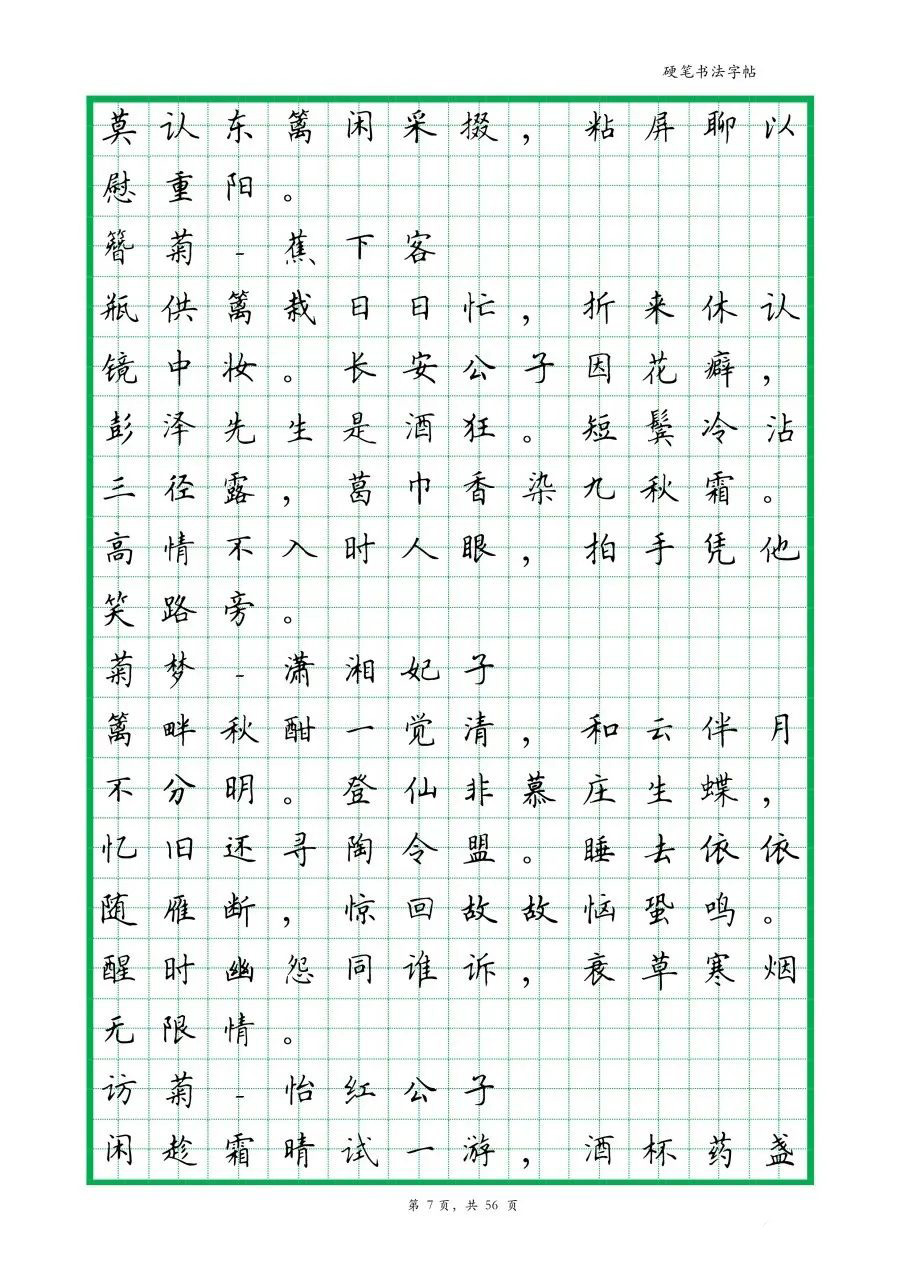 硬笔书法字帖
莫认东篱闲采掇，粘屏聊以
慰重阳。
簪菊-蕉下客
瓶供篱栽日日忙，折来休认
镜中妆。长安公子因花癖，
彭泽先生是酒狂。短鬓冷沾
三径露，葛巾香染九秋霜。
高情不入时人眼，拍手凭他
笑路旁。
菊梦-潇湘妃子
篱畔秋酣一觉清，和云伴月
不分明。登仙非慕庄生蝶，
忆旧还寻陶令盟。睡去依依
随雁断，惊回故故恼蛩鸣。
醒时幽怨同谁诉，衰草寒烟
无限情。
访菊-怡红公子
闲趁霜晴试一游，酒杯药盏
第 7 页，共 56 页